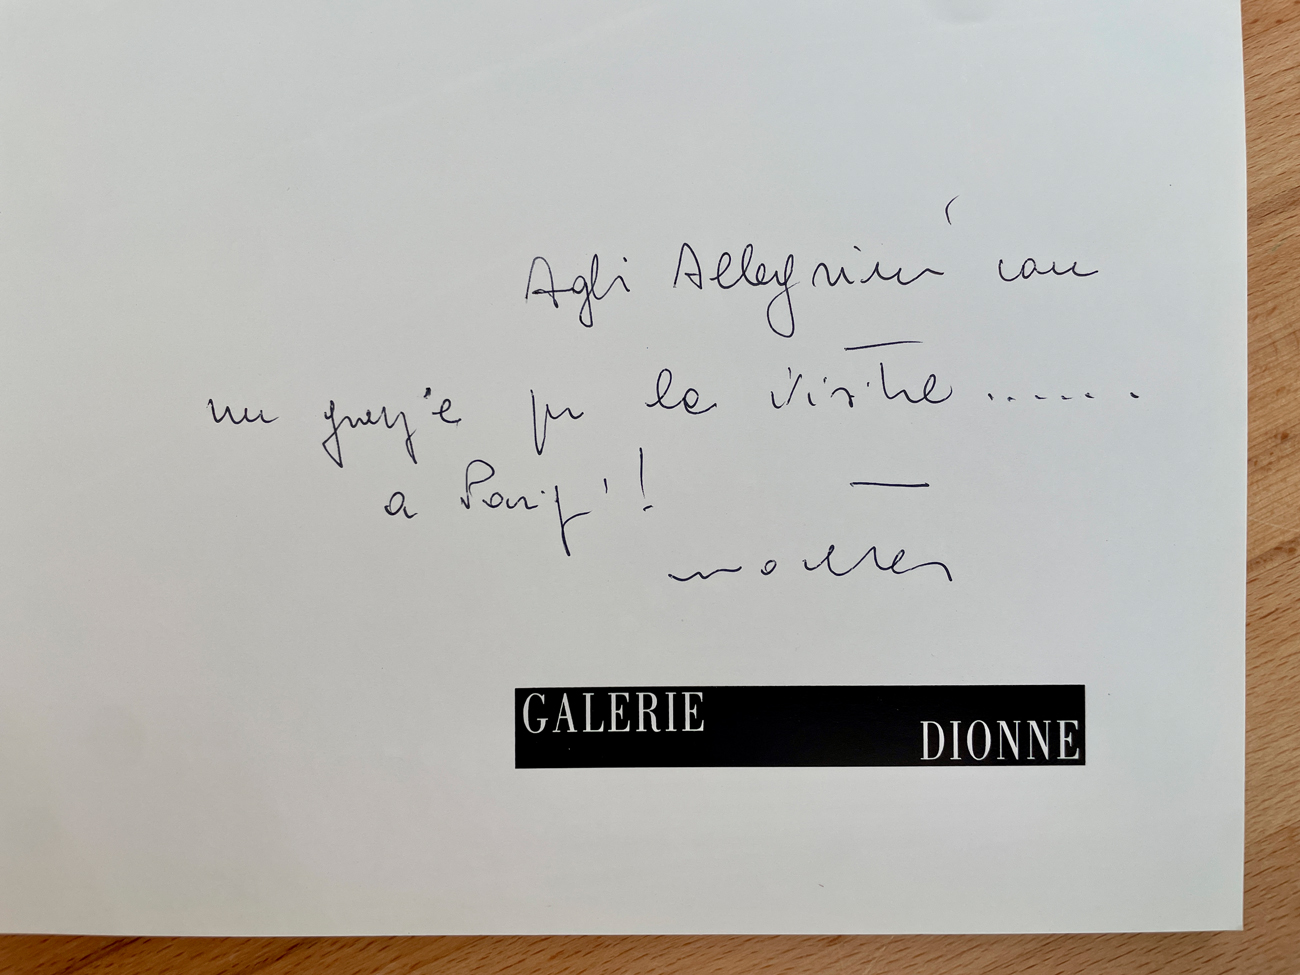 Agli Allegrini con
un grazie per la visita......
a Parigi!
GALERIE
DIONNE